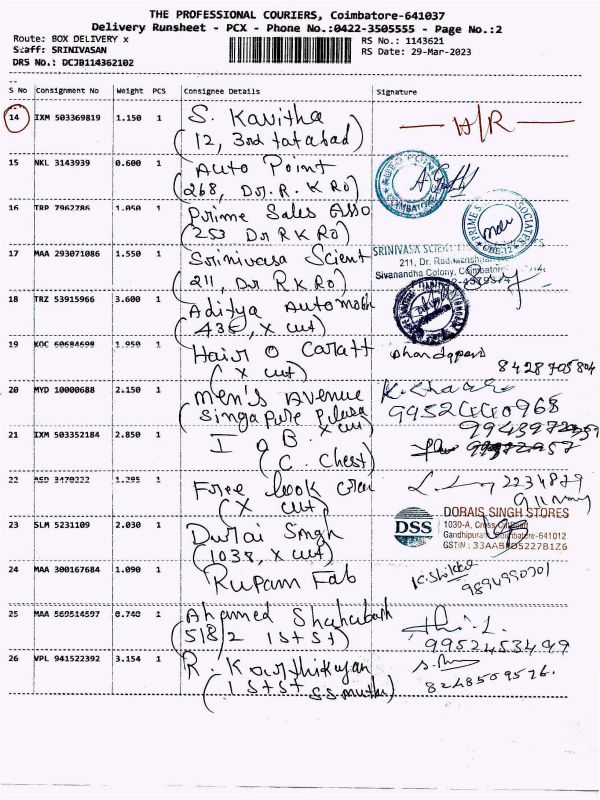 THE PROFESSIONAL COURIERS, Coimbatore-641037
Delivery Runsheet - PCX - Phone No.:0422-3505555 - Page No.:2
Route: BOX DELIVERY x
RS No.: 1143621
Staff: SRINIVASAN
RS Date: 29-Mar-2023
DRS No.: DCJB114362102
S No Consignment No Weight PCS Consignee Details Signature
14 IXM 503369819 1.150 1 S. Kavitha
(12, 3rd tatabad) H/R
15 NKL 3143939 0.600 1 Auto Point
(268, Dr. R. K Ro) AUTO POINT COIMBATORE
16 TRP 7962786 1.050 1 Prime Sales Asso
(253 Dr R K Ro) PRIME ASSOCIATES CBE-12
17 MAA 293071086 1.550 1 Srinivasa Scient
(211, Dr R K Ro)
SRINIVASA
211, Dr.
Sivanandha Colony, Coimbatore
18 TRZ 53915966 3.600 1 Aditya Automob
(436, X cut)
19 KOC 60684698 1.950 1 Hair O Caratt
(X cut) 8428705804
20 MYD 10000688 2.150 1 Men's Avenue
(Singapure Plasa X cut)
21 IXM 503352184 2.850 1 I O B
(C. Chest)
22 ASD 3470222 1.295 1 Free look
(X cut) 2234879
23 SLM 5231109 2.030 1 Durai Singh
(1038, X cut)
DSS DORAIS SINGH STORES
1030-A, Cross Cut Road
Gandhipuram, Coimbatore-641012
GSTIN : 
24 MAA 300167684 1.090 1 Rupam Fab
25 MAA 569514597 0.740 1 Ahamed Shahabash
(518/2 1st St) 9952453499
26 VPL 941522392 3.154 1 R. Karthikeyan
(1st St S.S. muthu) 8248509576.